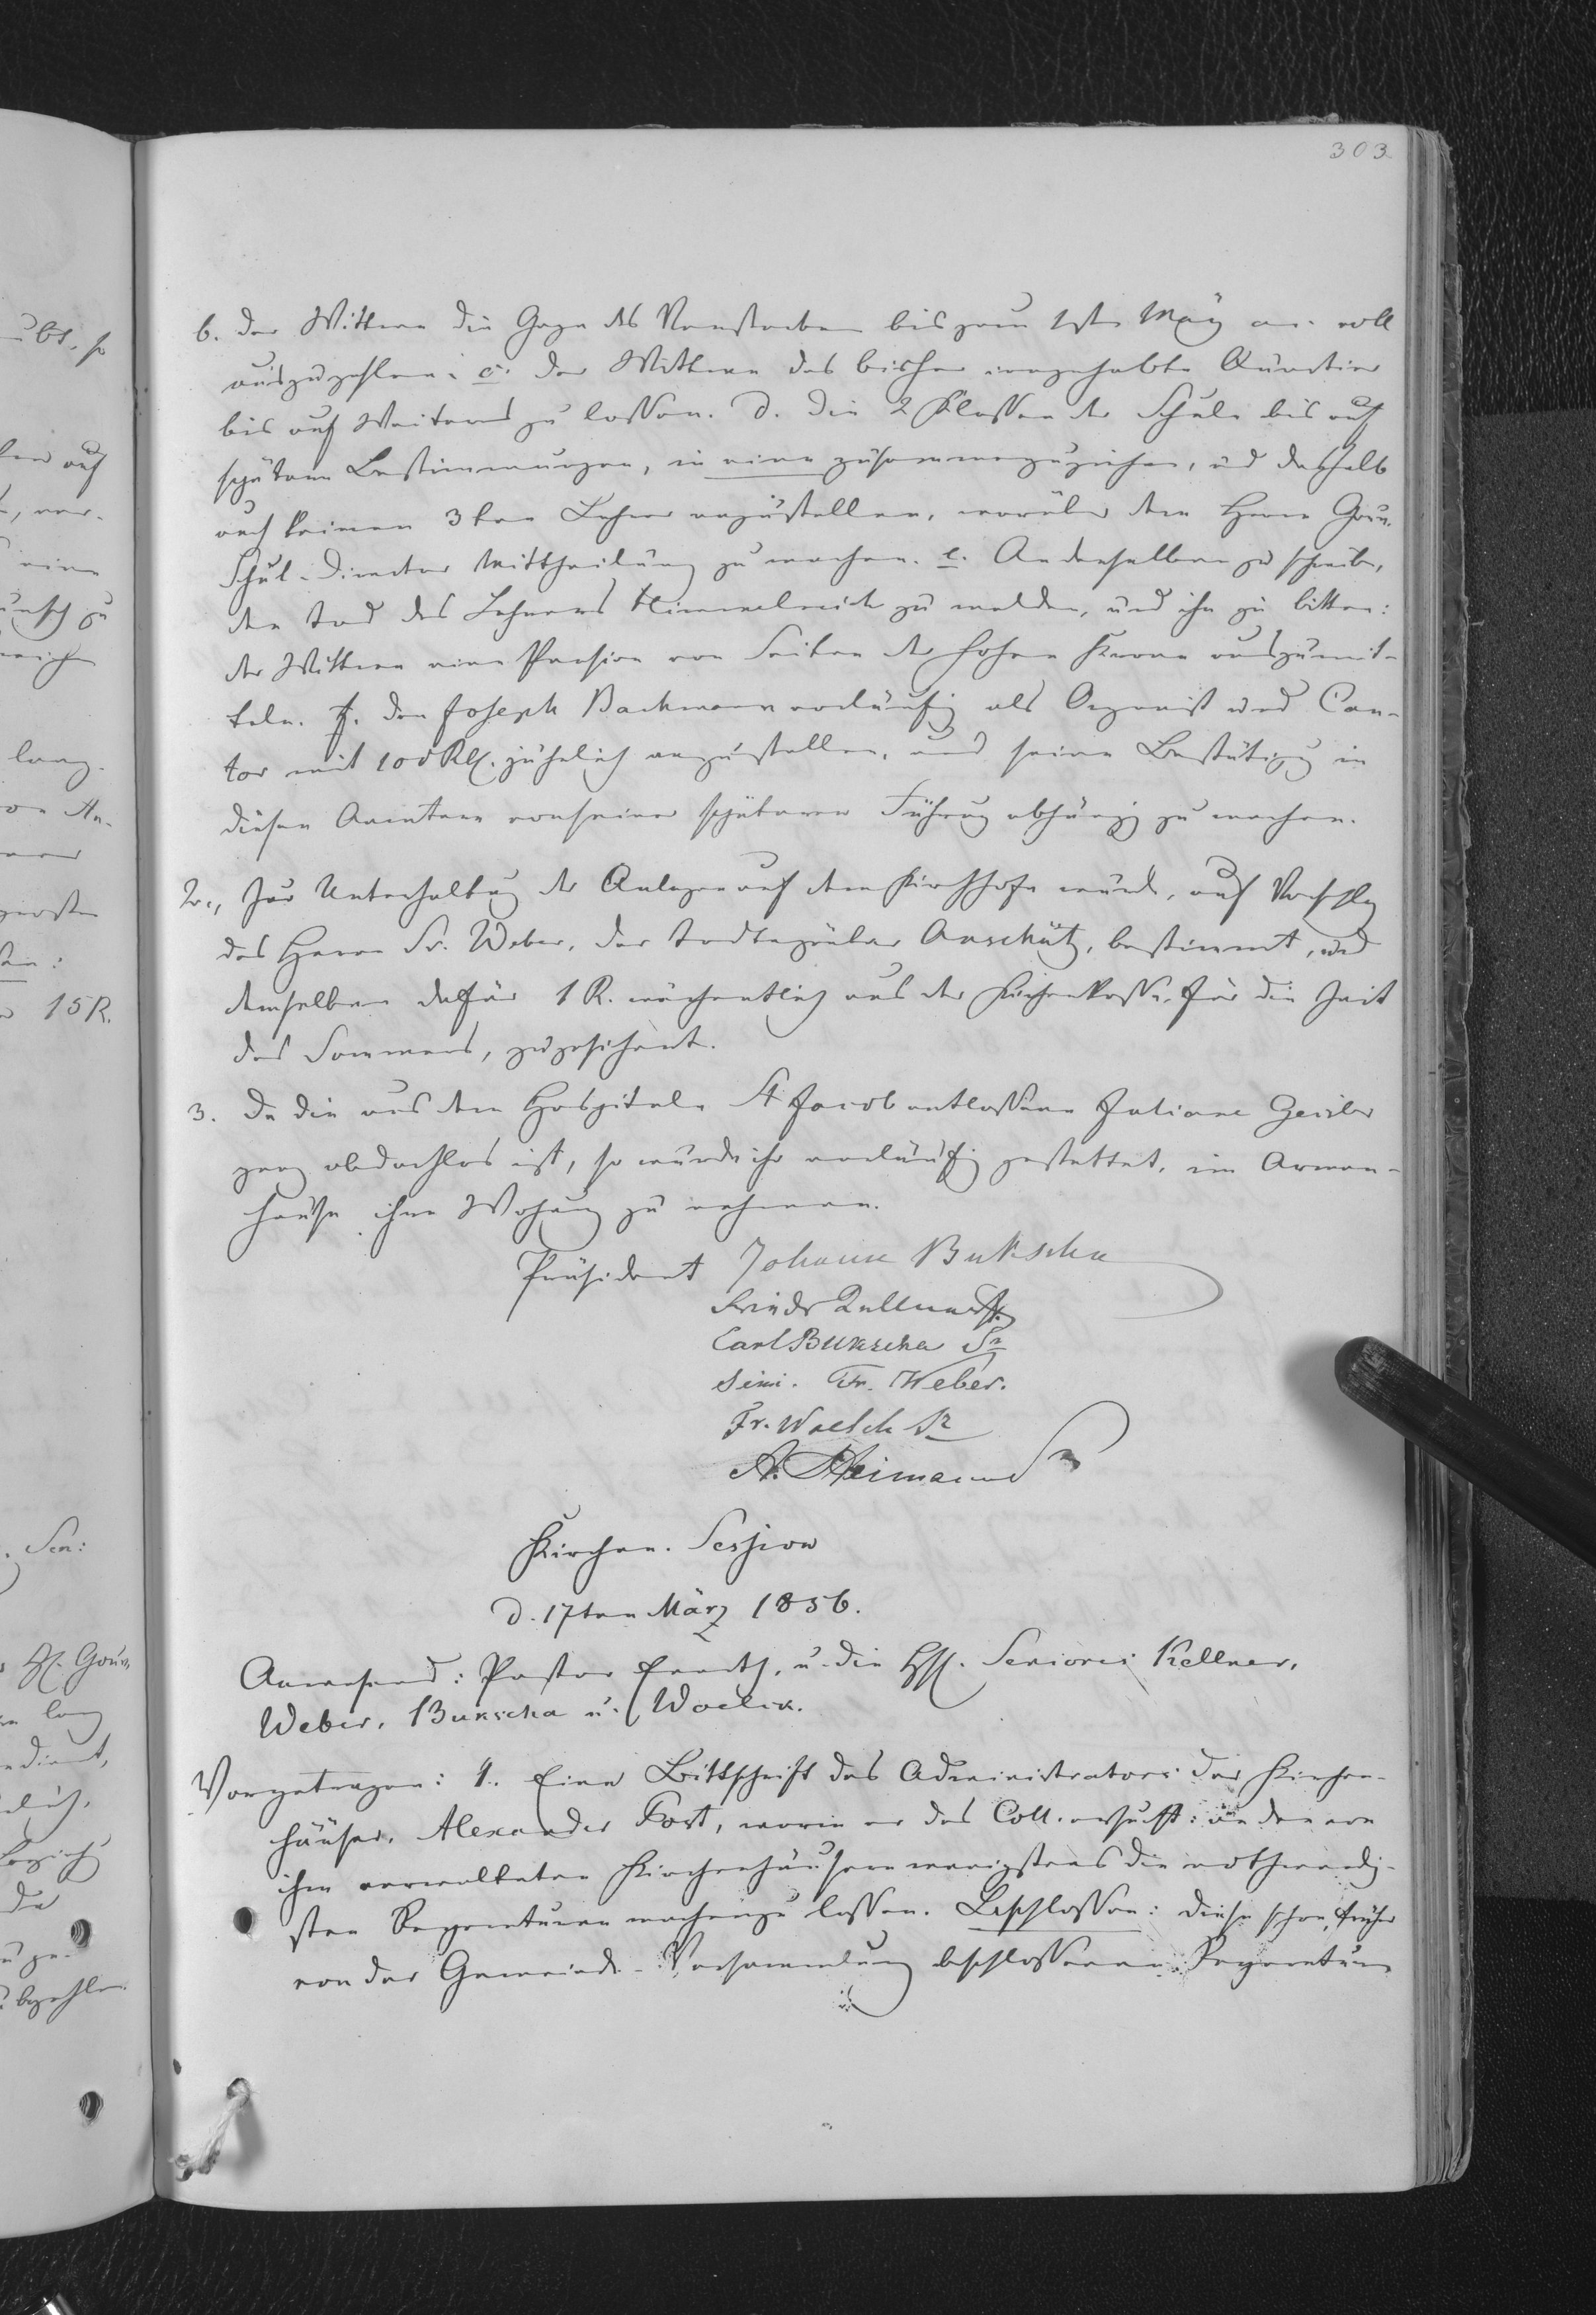 303
b. der Wittwe die Gage des Verstorbenen bis zum 1sten May a. c. voll
auszuzahlen. c. der Wittwe das bisher innegehabte Quartier
bis auf Weiteres zu lassen. d. die 2 Klassen der Schule bis auf
spätere Bestimmungen, in eine zusammenzuziehen, und deshalb
auch keinen 3ten Lehrer anzustellen, worüber dem Herrn Gouv.
Schul-Director Mittheilung zu machen. e. An denselben zu schreiben,
den Tod des Lehrers Himmelreich zu melden, und ihn zu bitten:
der Wittwe eine Pension von Seiten der hohen Krone auszumit-
teln. f. den Joseph Backmann vorläufig als Organist und Can-
tor mit 100 Rbl. jährlich anzustellen, und seine Bestätigung in
diesen Aemtern von seiner späteren Führung abhängig zu machen.
2., Zur Unterhaltung der Anlagen auf dem Kirchhofe wurde, auf Vorschlag
des Herrn Sr. Weber, der Todtengräber Anschütz, bestimmt, und
demselben dafür 1 R. wöchentlich aus der Kirchenkasse, für die Zeit
des Sommers, zugesichert.
3. Da die aus dem Hospitale St Jacob entlassene Juliane Geisler
ganz obdachlos ist, so wurde ihr vorläufig gestattet, im Armen-
hause ihre Wohnung zu nehmen.
Präsident Johann Bukscha
Friedr Kellner
Carl Bukscha Sr
Seni. Fr. Weber.
Fr. Woelck Sr
A. Heimann Sr
Kirchen-Session
d. 17ten März 1856.
Anwesend: Pastor u. die HH. Seniores: Kellner,
Weber, Bukscha u. Woelck.
Vorgetragen: 1. Eine Bittschrift des Administrators der Kirchen-
häuser, Alexander Fort, worin er das Coll. ersucht: an den von
ihm verwalteten Kirchenhäusern wenigstens die nothwendig-
sten Reparaturen machen zu lassen. Beschlossen: diese schon früher
von der Gemeinde-Versammlung beschlossenen Reparaturen